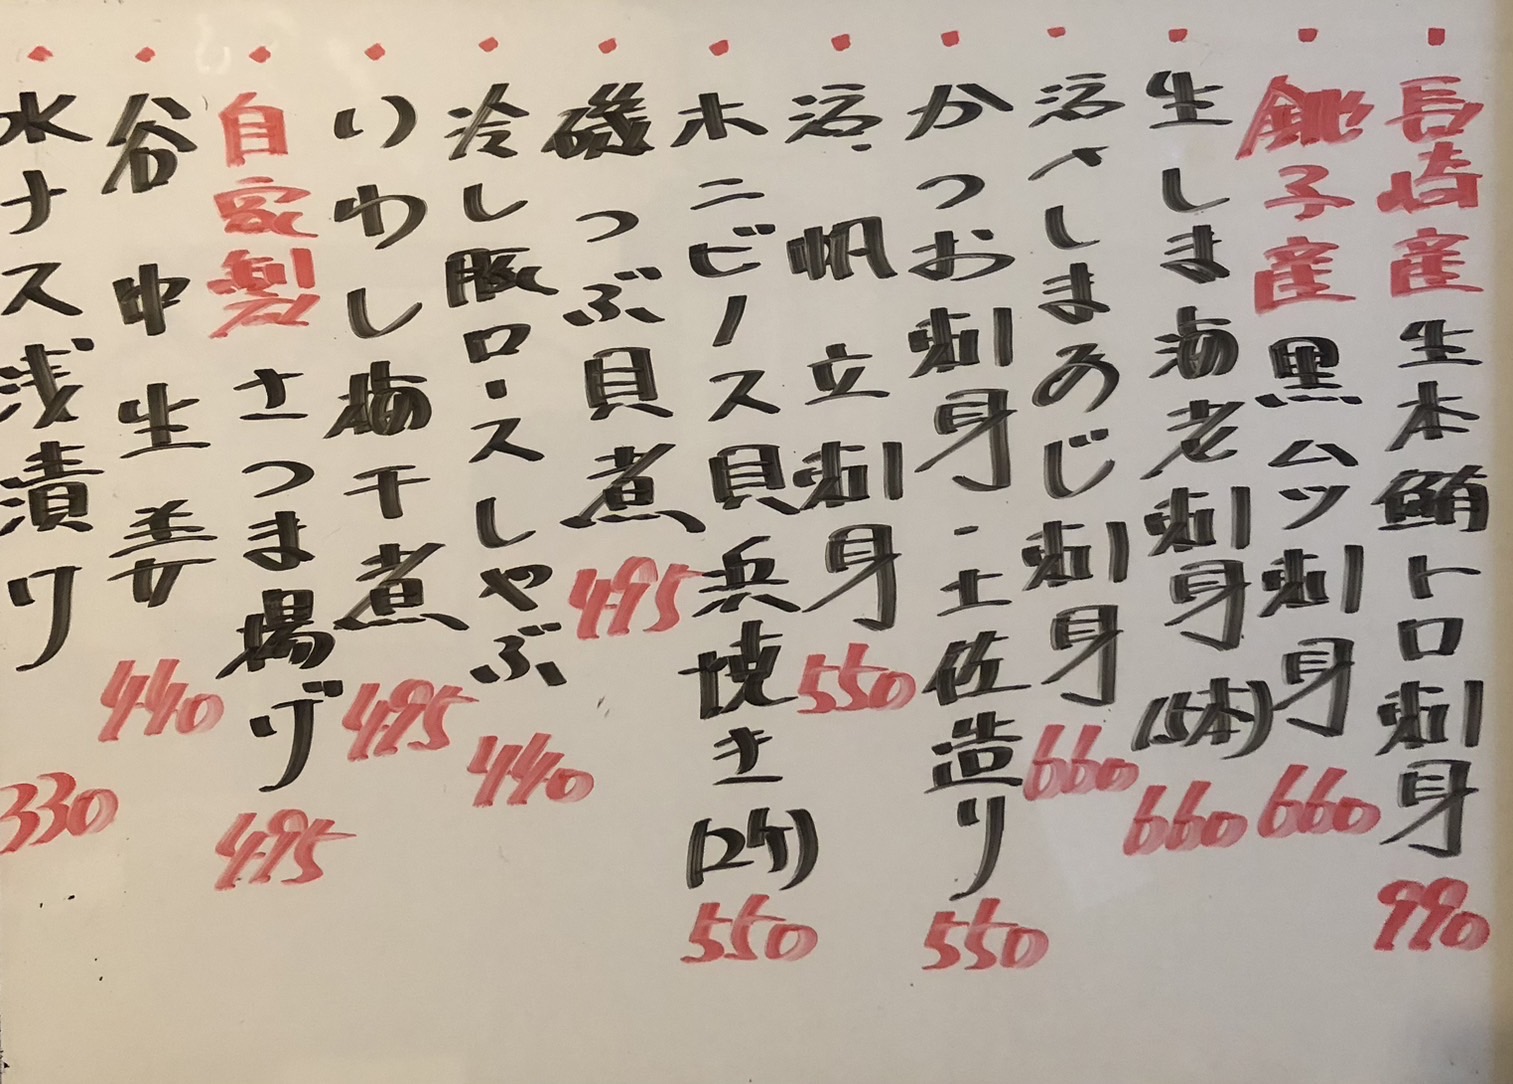 長崎産生本鮪トロ刺身 990
銚子産黒ムツ刺身 660
生しま海老刺身(5本) 660
活〆しまあじ刺身 660
かつお刺身・土佐造り 550
活帆立刺身 550
ホンビノス貝兵焼き(2ケ) 550
磯つぶ貝煮 495
冷し豚ロースしゃぶ 440
いわし梅干煮 495
自家製さつま揚げ 495
谷中生姜 440
水ナス浅漬け 330